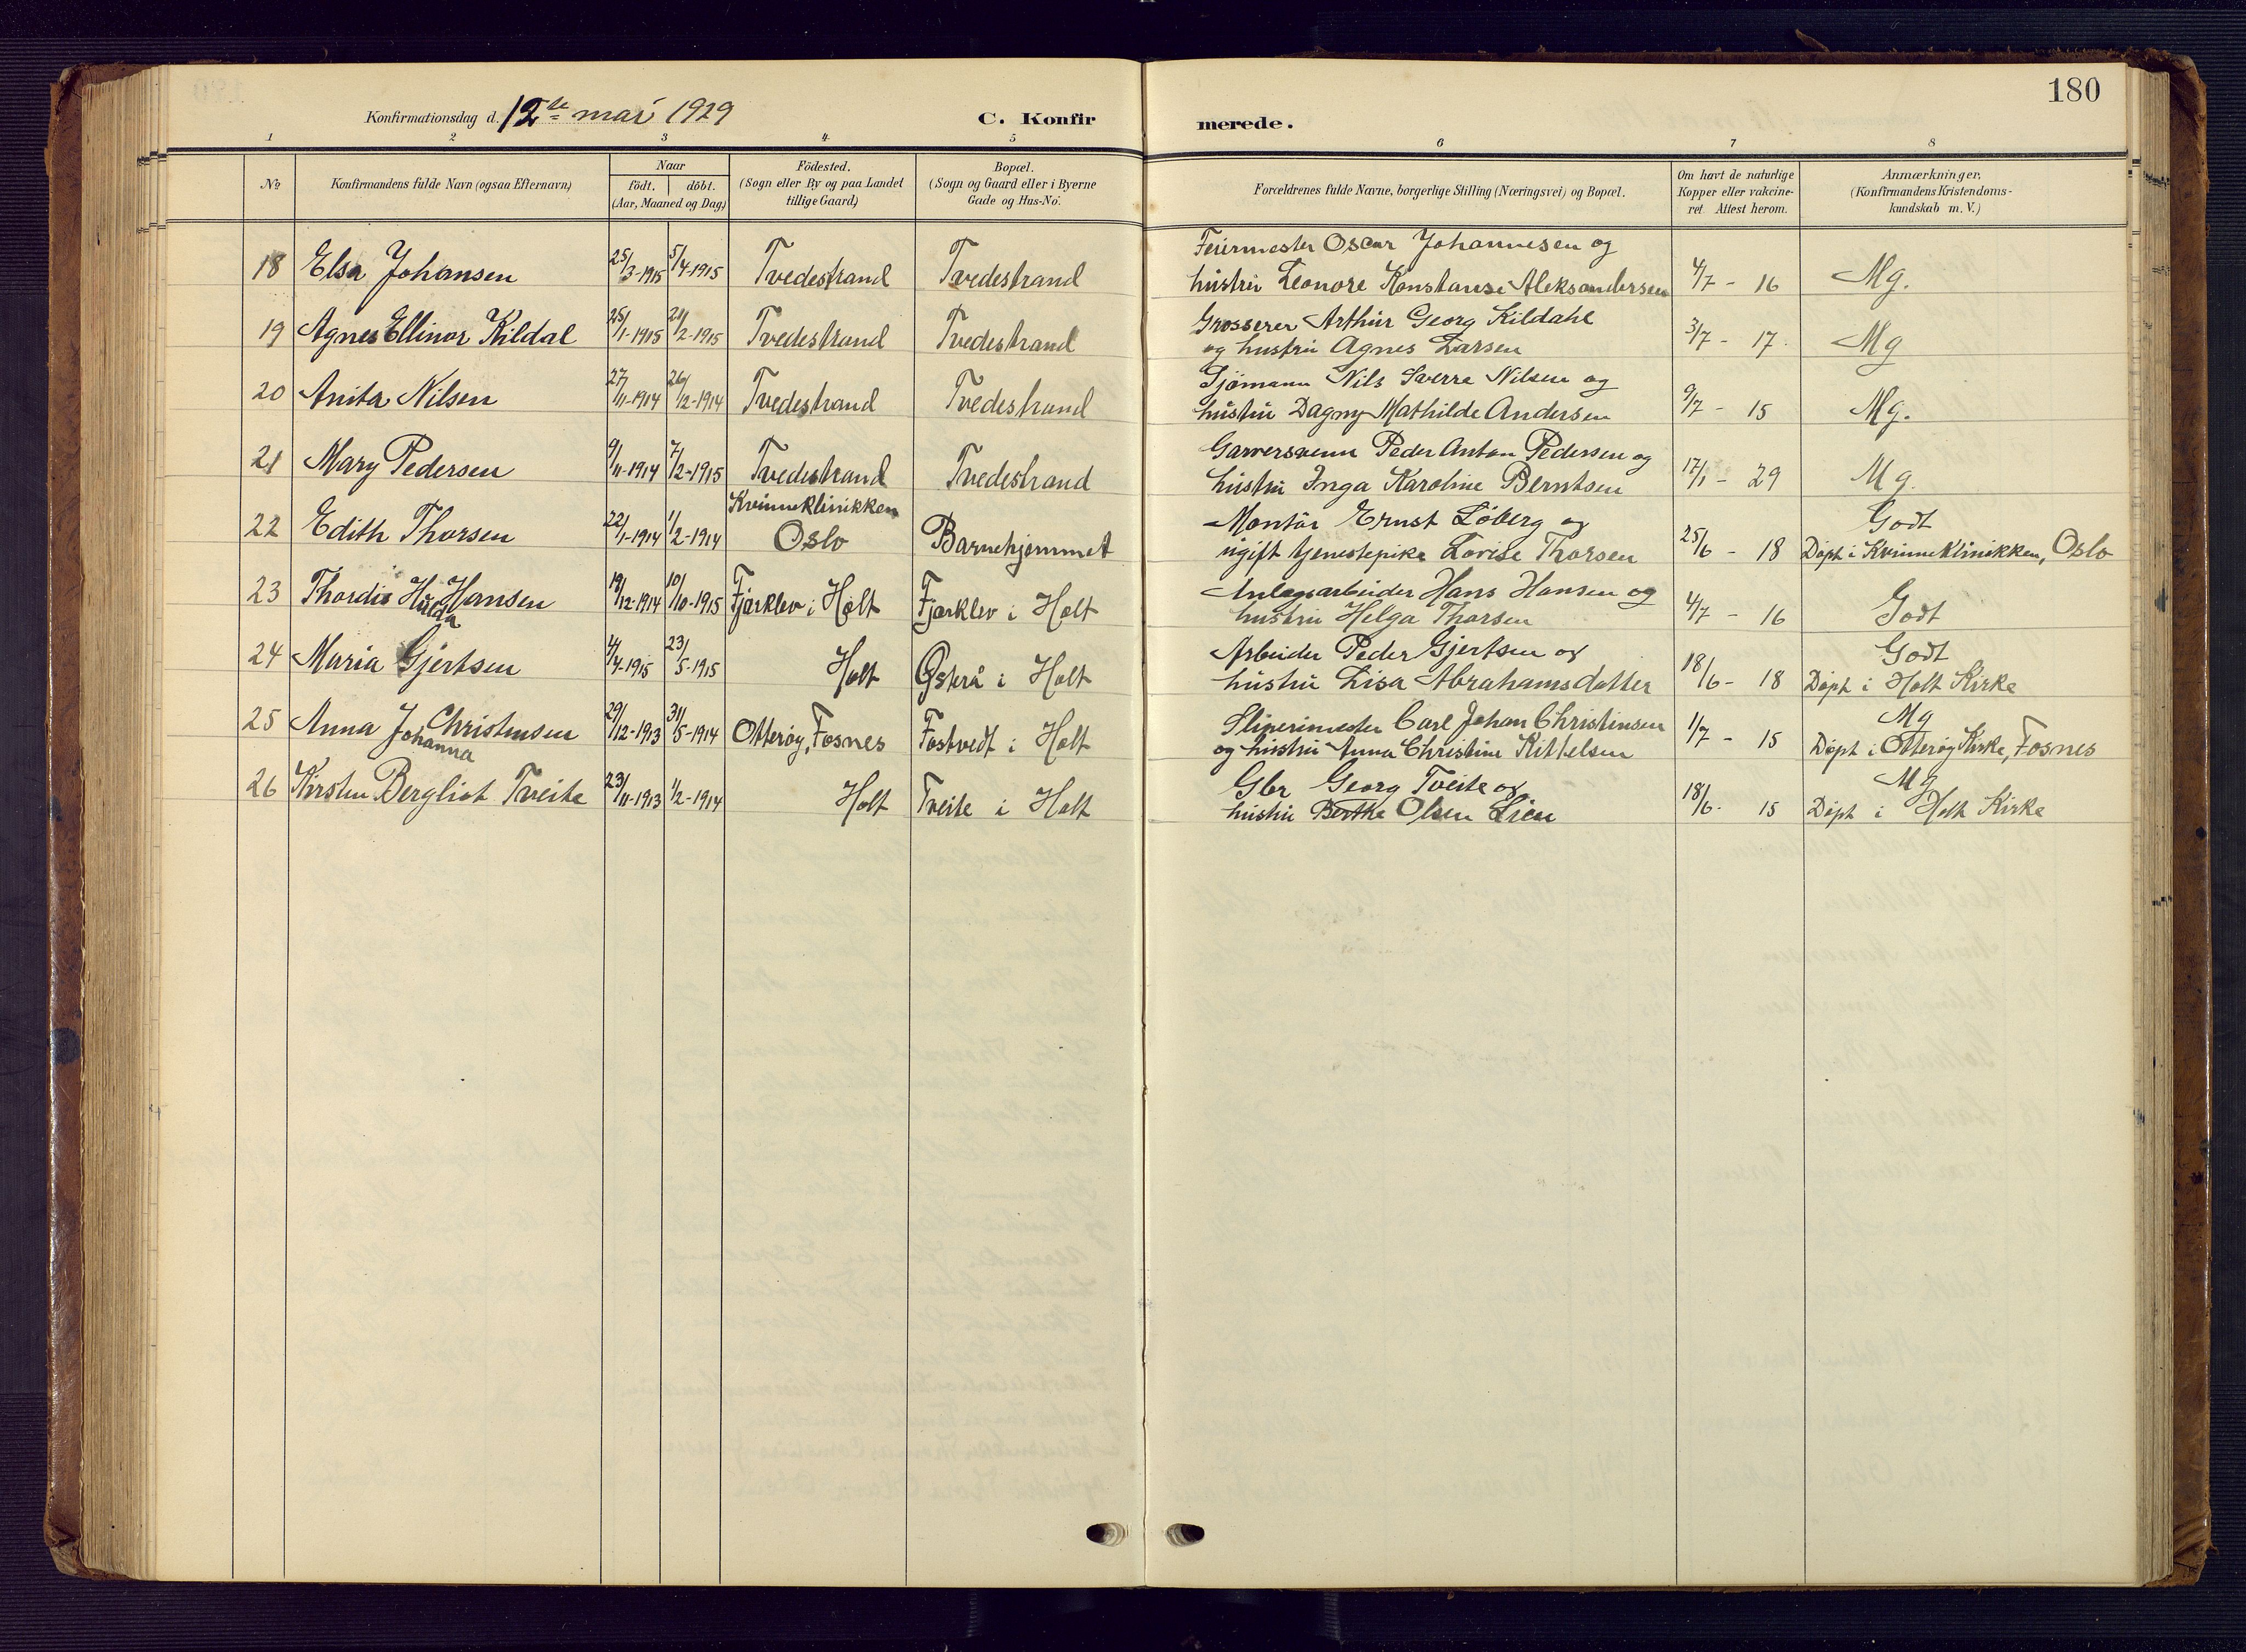 180
Konfirmationsdag d. 12te mai 1929
C. Konfirmerede.
1 2 3 4 5 6 7 8
No
Konfirmandens fulde Navn (ogsaa Efternavn)
Naar
födt. döbt.
(Aar, Maaned og Dag)
Födested.
(Sogn eller By og paa Landet
tillige Gaard)
Bopæl.
(Sogn og Gaard eller i Byerne
Gade og Hus-No.
Forældrenes fulde Navne, borgerlige Stilling (Næringsvei) og Bopæl.
Om havt de naturlige
Kopper eller vakcine-
ret Attest herom.
Anmærkninger.
(Konfirmandens Kristendoms-
kundskab m. V.)
18 Elsa Johansen 25/3-1915 5/4-1915 Tvedestrand Tvedestrand Feiermester Oscar Johannesen og
hustru Leonore Konstanse Aleksandersen 4/7 - 16 Mg.
19 Agnes Ellinor Kildal 25/1-1915 21/2-1915 Tvedestrand Tvedestrand Grosserer Arthur Georg Kildahl
og hustru Agnes Larsen 3/7 - 17. Mg
20 Anita Nilsen 27/11-1914 26/12-1914 Tvedestrand Tvedestrand Sjømann Nils Sverre Nilsen og
hustru Dagny Mathilde Andersen 9/7 - 15 Mg.
21 Mary Pedersen 9/11-1914 7/2-1915 Tvedestrand Tvedestrand Garversvenn Peder Anton Pedersen og
hustru Inga Karoline Berntsen 17/1 - 29 Mg.
22 Edith Thorsen 22/1-1914 1/2-1914 Kvinneklinikken
Oslo Barnehjemmet Montør Ernst Løberg og
ugift tjenestepike Lovise Thorsen 25/6 - 18 Godt
Døpt i Kvinneklinikken, Oslo
23 Thordis Hulda Hansen 19/12-1914 10/10-1915 Fjærklev i Holt Fjærklev i Holt Anlægsarbeider Hans Hansen og
hustru Helga Thorsen 4/7 - 16 Godt
24 Maria Gjertsen 4/4-1915 23/5-1915 Holt Østerå i Holt Arbeider Peder Gjertsen og
hustru Lisa Abrahamsdatter 18/6 - 18 Godt
Døpt i Holt Kirke
25 Anna Johanna Christensen 29/12-1913 31/5-1914 Otterøy, Fosnes Fostvedt i Holt Sliperimester Carl Johan Christensen
og hustru Anna Christine Kittelsen 1/7 - 15 Mg
Døpt i Otterøy Kirke, Fosnes
26 Kirsten Bergliot Tveite 23/11-1913 1/2-1914 Holt Tveite i Holt Gbr Georg Tveite og
hustru Berthe Olsen Lien 18/6. 15 Mg
Døpt i Holt Kirke